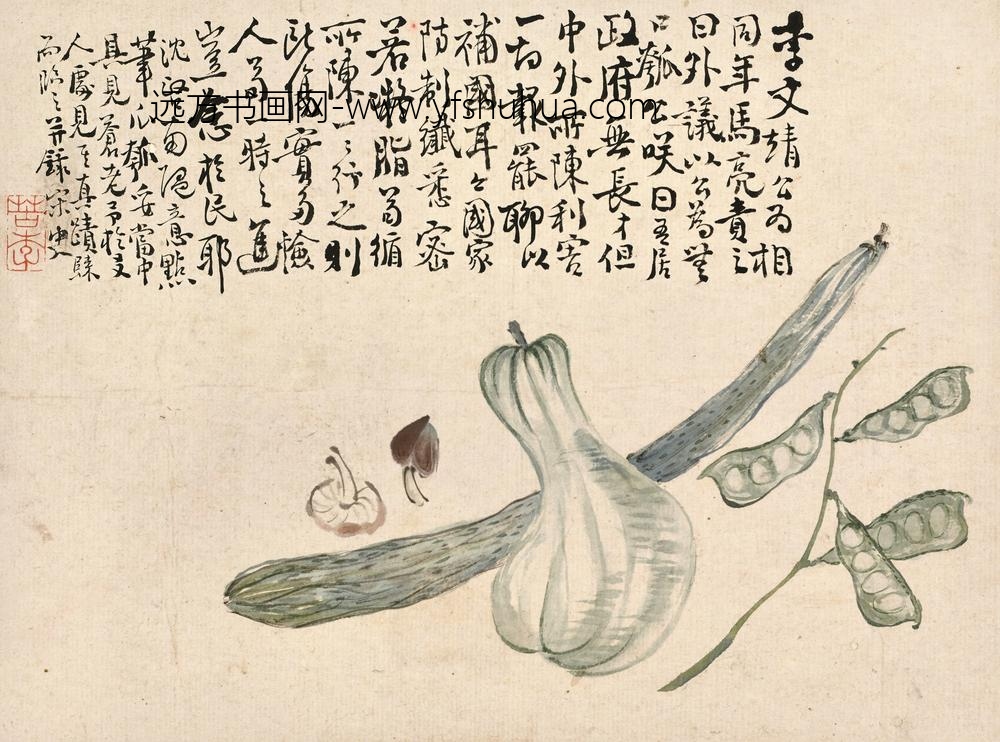 李文靖公為相
同年馬亮責之
曰外議以公為無
口瓠公咲曰吾居
政府無長才但
中外所陳利害
一切報罷聊以
補國耳今國家
防制纖悉密
若凝脂苟循
所陳一一行之則
傷實多憸
人苟一時之進
豈念於民耶
沈啟南隨意點
筆瓜瓠妥當中
具見蒼老予於友
人處見其真蹟
而臨之并錄宋史
苦李
远方书画网-www.yfshuhua.com